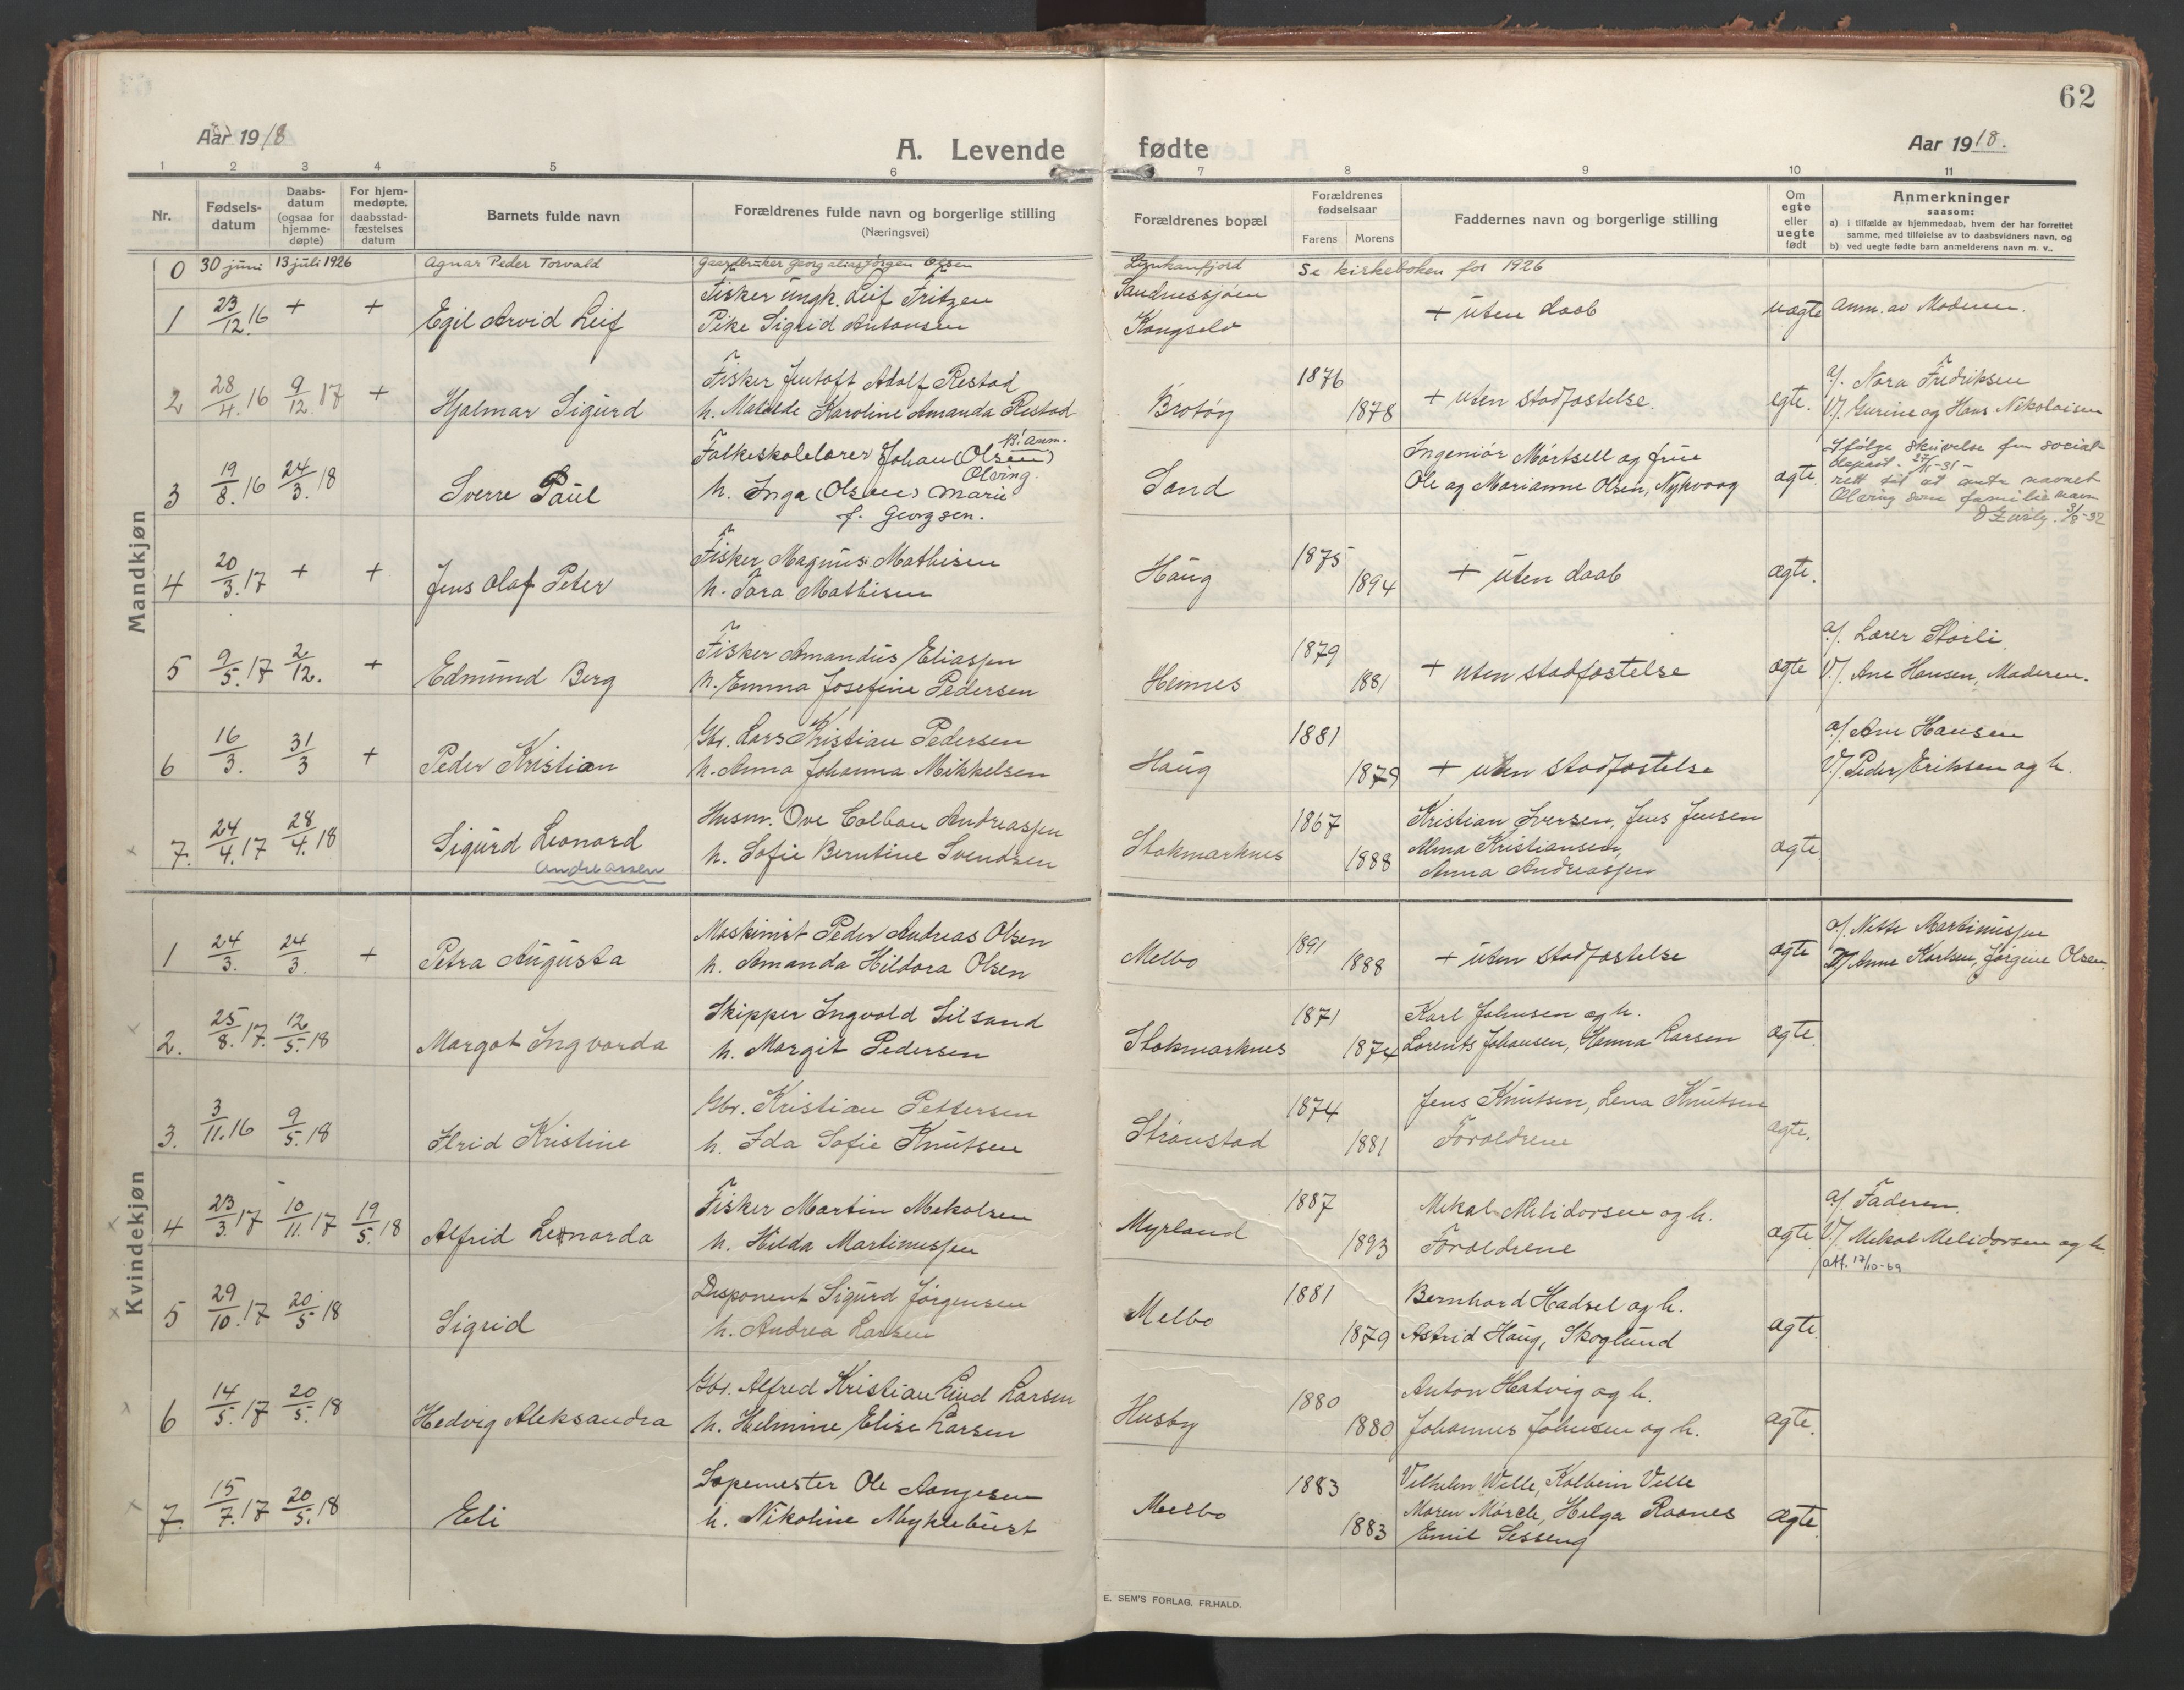 62
Aar 1918
A. Levende fødte
Aar 1918.
1 2 3 4 5 6 7 8 9 10 11
Nr.
Fødsels-datum
Daabs-datum (ogsaa for hjemme-døpte)
For hjem-medøpte, daabsstad-fæstelses datum
Barnets fulde navn
Forældrenes fulde navn og borgerlige stilling
(Næringsvei)
Forældrenes bopæl
Forældrenes fødselsaar
Farens Morens
Faddernes navn og borgerlige stilling
Om egte eller uegte født
Anmerkninger
saasom:
a) i tilfælde av hjemmedaab, hvem der har forrettet
samme, med tilføielse av to daabsvidners navn, og
b) ved uegte fødte barn anmelderens navn m. v..
Mandkjøn
0 30 juni 13 juli 1926 Agnar Peder Torvald Gaardbruker Georg alias Jörgen Olsen Se kirkeboken for 1926
1 23/12.16 + + Egil Arvid Leif Fisker ungk. Leif Fritzen Sandnessjøen + uten daab uægte Anm. av Moderen.
Pike Sigrid Antonsen Kongselv
2 28/4.16 9/12.17 + Hjalmar Sigurd Fisker Jentoft Adolf Restad Brotøy 1876 + uten stadfæstelse. egte. a/. Nora Fredriksen
h. Matilde Karoline Amanda Restad 1878 V/. Gurine og Hans Nikolaisen
3 19/8.16 24/3.18 Sverre Paul Folkeskolelærer Johan (Olsen) B! anm. Ølving. Sand Ingeniør Mörtsell og frue ægte. Ifølge skrivelse fra social-
h. Inga (Olsen) Marie Ole og Marianne Olsen, Nykvaag depart. 27/1-31-
f. Georgsen. rett til at anta navnet
Ølving som familienavn
3/8-32
4 20/3.17 + + Jens Olaf Peter Fisker Magnus Mathisen Haug 1875 + uten daab ægte.
h. Tora Mathisen 1894
5 9/5.17 2/12. + Edmund Berg Fisker Amandus Eliasjen Hemnes 1879 + uten stadfæstelse ægte a/. Lærer Storli.
h. Emma Josefine Pedersen 1881 V/. Ane Hansen, Moderen.
6 16/3. 31/3 + Peder Kristian Gbr. Lars Kristian Pedersen Haug 1881 + uten stadfæstelse a/. Ane Hansen
h. Anna Johanna Mikkelsen 1879 V/. Peder Eriksen og h.
7. 24/4.17 28/4.18 Sigurd Leonard Husm. Ove Colban Andreasjen Stokmarknes 1867 Kristian Iversen, Jens Jensen ægte.
Andreassen h. Sofie Berntine Svendsen 1888 Alma Kristiansen,
Anna Andreasjen
Kvindekjøn
1 24/3. 24/3. + Petra Augusta Maskinist Peder Andreas Olsen Melbo 1891 + uten stadfæstelse ægte a/. Mette Martinussen
h. Amanda Hildora Olsen 1888 V/ Anne Karlsen, Jørgine Olsen.
2. 25/8.17. 12/5.18 Margot Ingvarda Skipper Ingvald Silsand Stokmarknes 1871 Karl Johnsen og h. ægte.
h. Margit Pedersen 1874 Lorents Johansen, Hanna Larsen
3. 3/11.16 9/5.18 Kristine Gbr. Kristian Pettersen Strønstad 1874 Jens Knutsen, Lena Knutsen ægte.
h. Ida Sofie Knutsen 1881 Forældrene
4 23/3.17 10/11.17 19/5.18 Alfrid Leonarda Fisker Martin Mekalsen Myrland 1887 Mekal Melidorsen og h. ægte. a/. Faderen.
h. Hilda Martinusjen 1893 Forældrene V/. Mekal Melidorsen og h.
att. 17/10-69
5 29/10.17 20/5.18 Sigrid Disponent Sigurd Jørgensen Melbo 1881 Bernhard Hadsel og h. ægte.
h. Andrea Larsen 1879 Astrid Haug, Skoglund
6 14/5.17 20/5.18 Hedvig Aleksandra Gbr. Alfred Kristian Lind Larsen Husby 1880 Anton Hatvig og h. ægte.
h. Helmine Elise Larsen 1880 Johannes Johnsen og h.
7. 15/7.17 20/5.18 Eli Sæpemester Ole Aanjesen Melbo 1883 Vilhelm Wille, Kolbein Velle ægte.
h. Nikoline Myklebust 1883 Maren Mørch, Helga Raanes
Emil Sesseng
E. SEM'S FORLAG, FR.HALD.